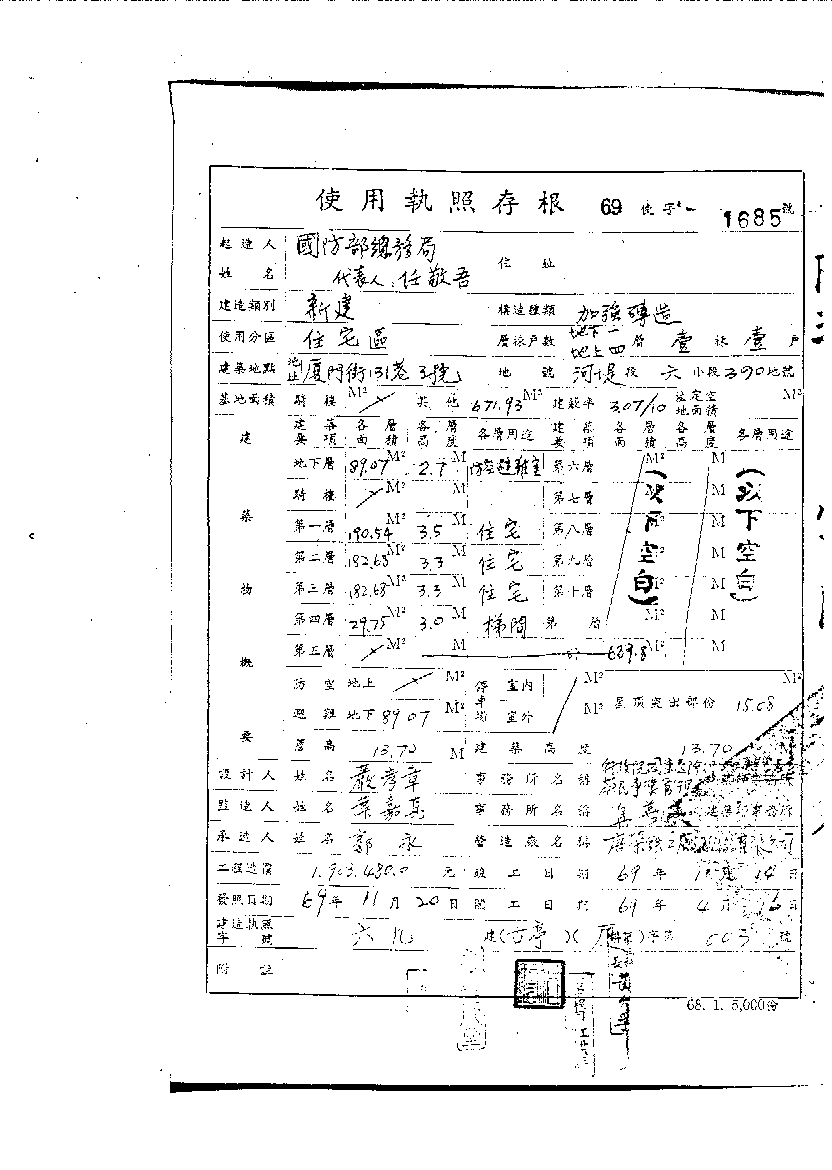 使用執照存根 69 使字 1685 號
起造人姓名 國防部總務局 代表人：任敬吾 住址
建造類別 新建 構造種類 加強磚造
使用分區 住宅區 層棟戶數 地下一地上四層 壹棟 壹戶
建築地點 地址 廈門街131巷3號 地號 河堤段六小段390地號
基地面積 騎樓 M² 其他 671.93 M² 建蔽率 3.07/10 法定空地面積 M²
建築物概要 建築要項 各層面積 各層高度 各層用途 建築要項 各層面積 各層高度 各層用途
地下層 89.07 M² 2.7 M 防空避難室 第六層 M² M
騎樓 M² M 第七層 M
第一層 190.54 M² 3.5 M 住宅 第八層 M
第二層 182.68 M² 3.3 M 住宅 第九層 M
第三層 182.68 M² 3.3 M 住宅 第十層 M² M
第四層 29.75 M² 3.0 M 梯間 第 層 M² M
第五層 M² M M² M
(以下空白) (以下空白)
防空避難 地上 M² 停車場 室內 M²
地下 89.07 M² 室外 M² 屋頂突出部份 15.08 M²
簷高 13.70 M 建築高度 13.70 M
設計人 姓名 事務所名稱
監造人 姓名 事務所名稱
承造人 姓名 郭永 營造廠名稱
工程造價 1,903,480.0 元 竣工日期 69年 月14日
發照日期 69年11月20日 開工日期 69年4月16日
建造執照字號 六九 建(古亭)( )字第 003 號
附註
68. 1. 5,000份